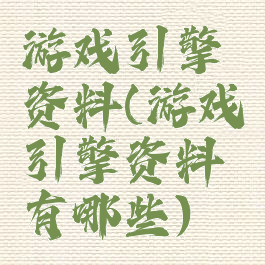 游戏引擎
资料(游戏
引擎资料
有哪些)